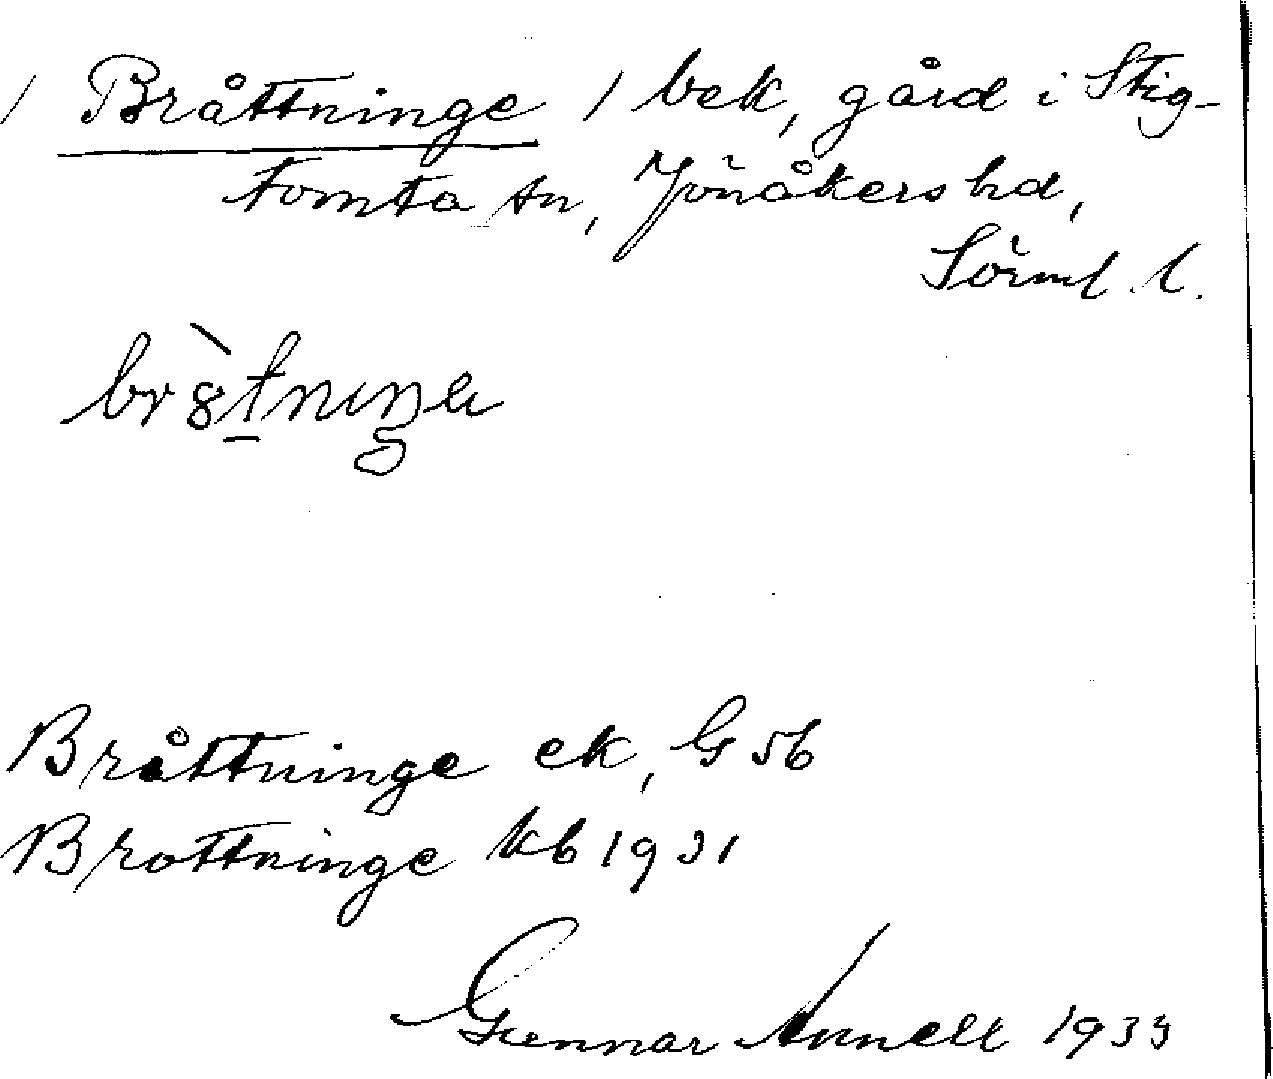 / Bråttninge / bek, gård i Stig-
tomta sn, Jönåkers hd,
Sörml l.
Bråttninge ek, G 56
Brottninge kb 1931
Gunnar Annell 1933